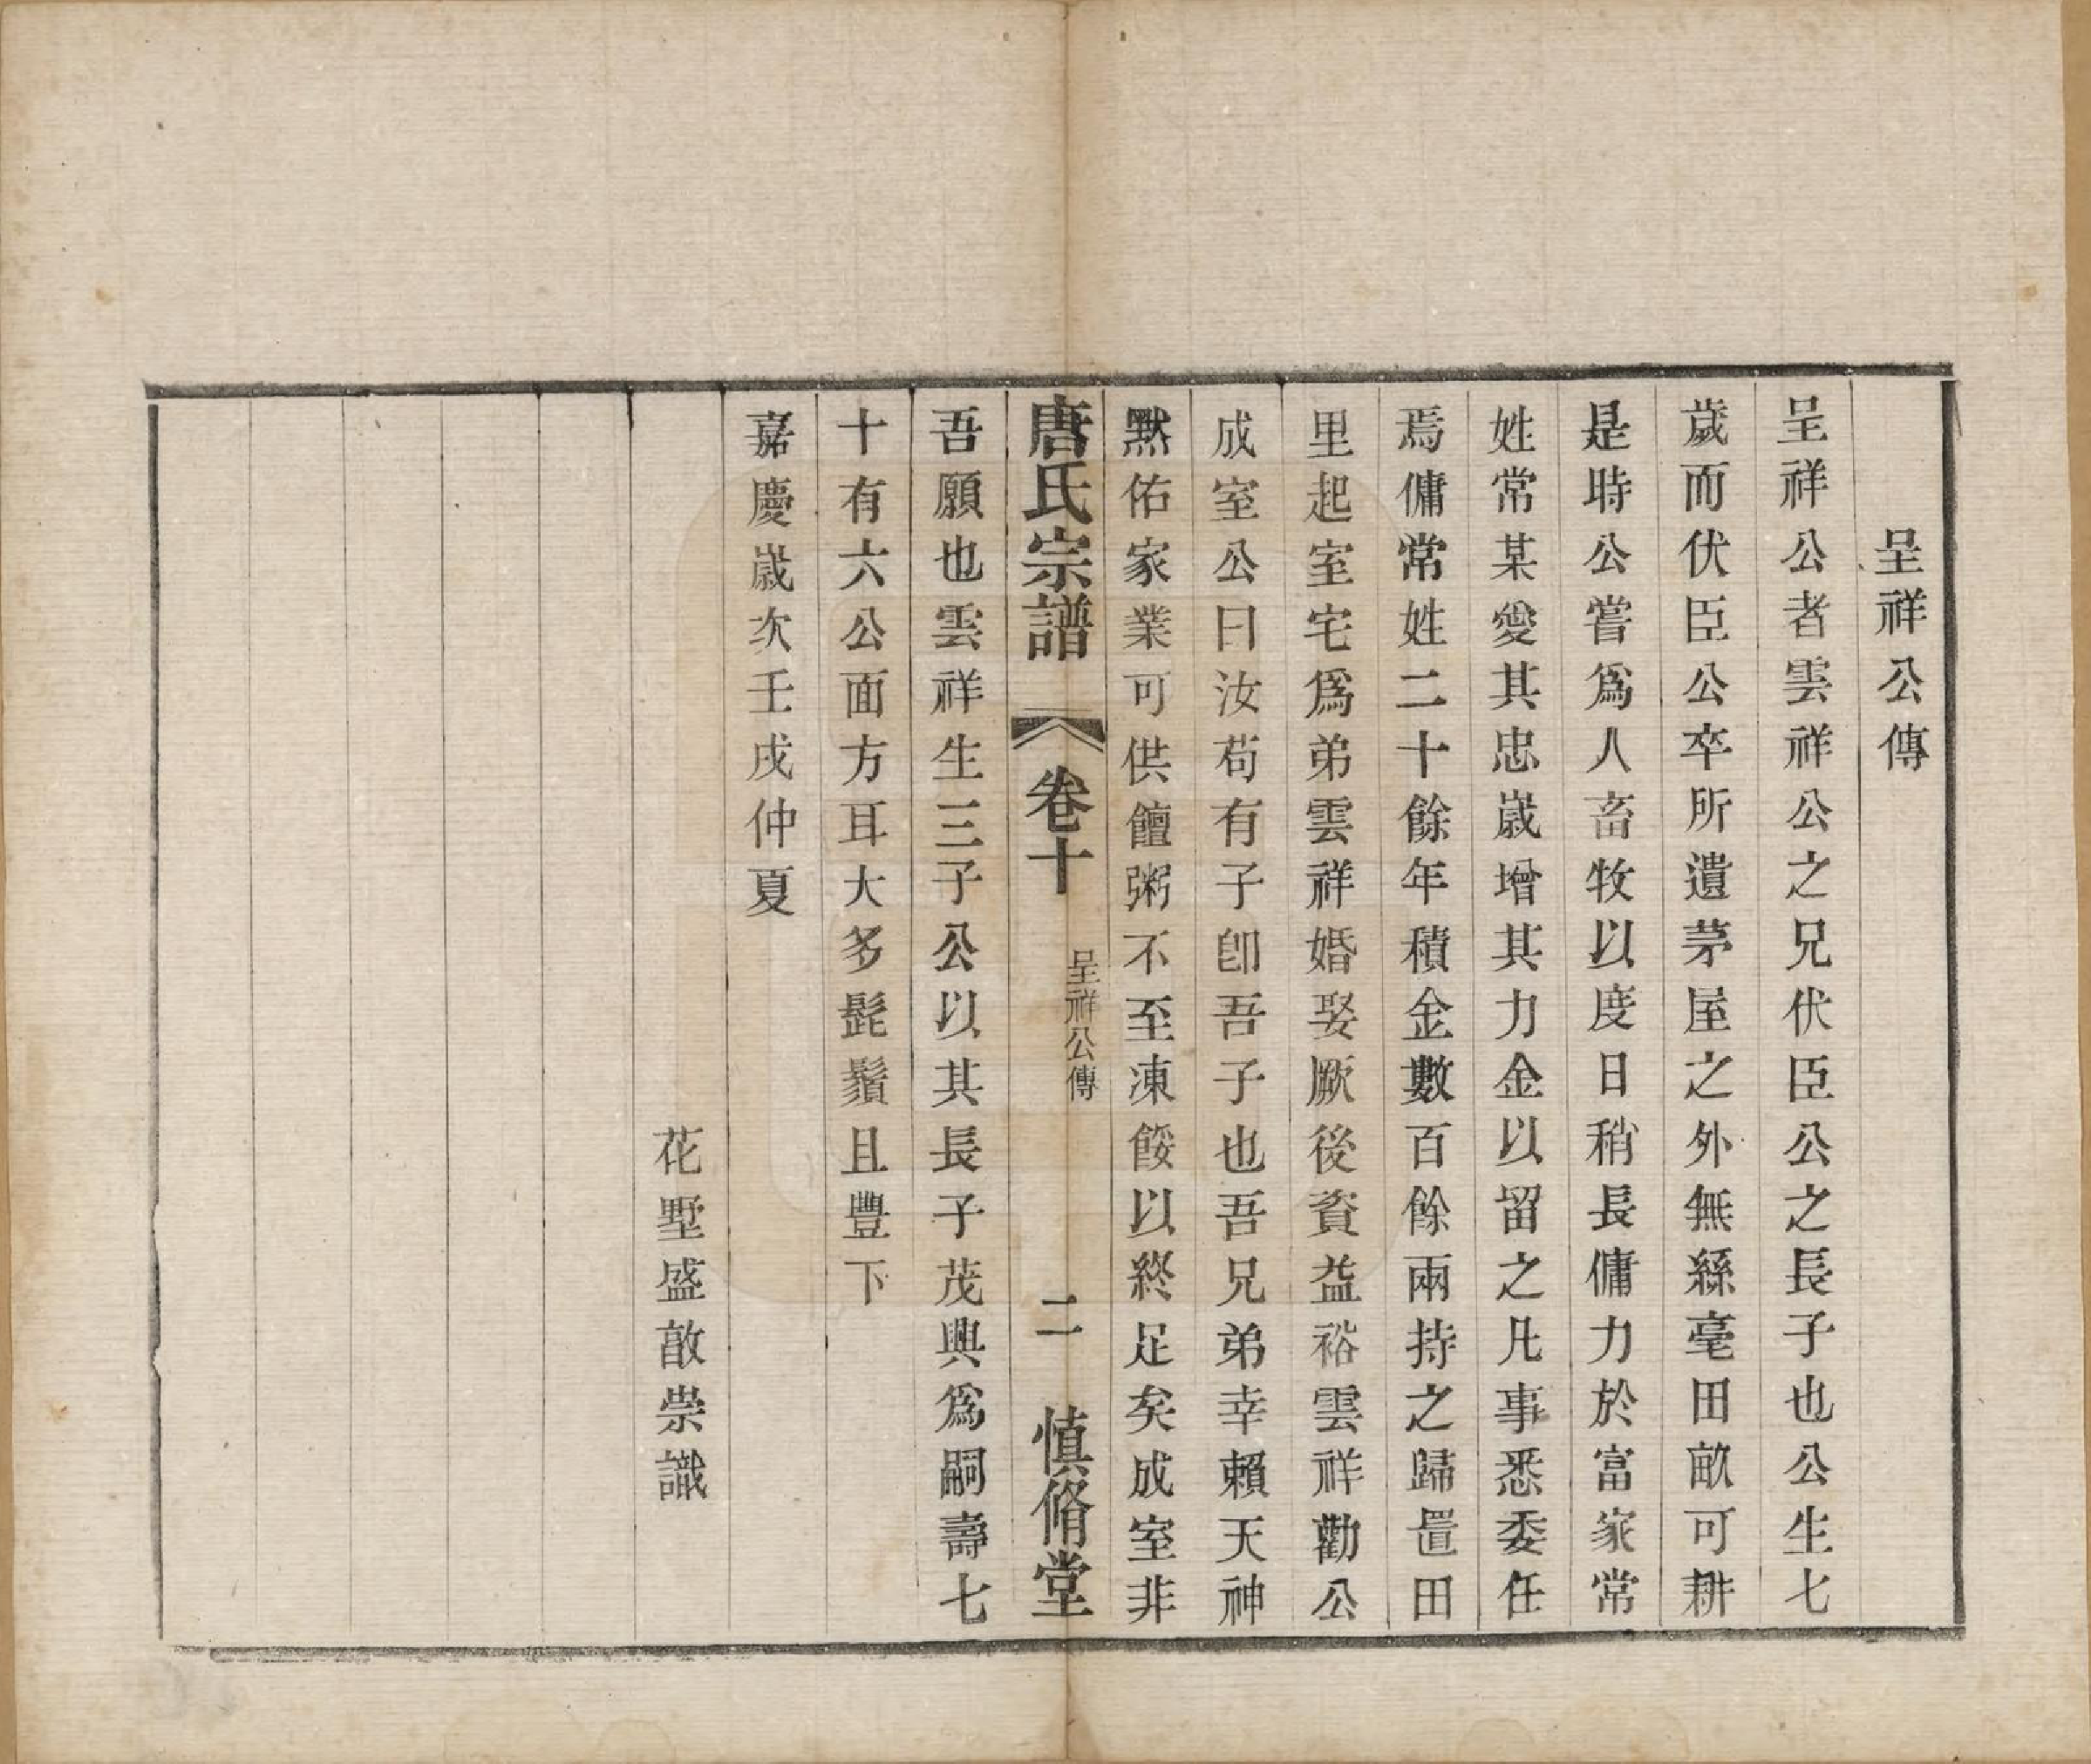 呈祥公傳
呈祥公者雲祥公之兄伏臣公之長子也公生七
歲而伏臣公卒所遺茅屋之外無絲毫田畝可耕
是時公嘗爲人畜牧以度日稍長傭力於富家常
姓常某愛其忠歲增其力金以留之凡事悉委任
焉傭常姓二十餘年積金數百餘兩持之歸置田
里起室宅爲弟雲祥婚娶厥後資益裕雲祥勸公
成室公曰汝苟有子卽吾子也吾兄弟幸賴天神
默佑家業可供饘粥不至凍餒以終足矣成室非
唐氏宗譜 卷十 呈祥公傳 二 慎脩堂
吾願也雲祥生三子公以其長子茂興爲嗣壽七
十有六公面方耳大多髭鬚且豐下
嘉慶歲次壬戌仲夏
花墅盛敢崇識